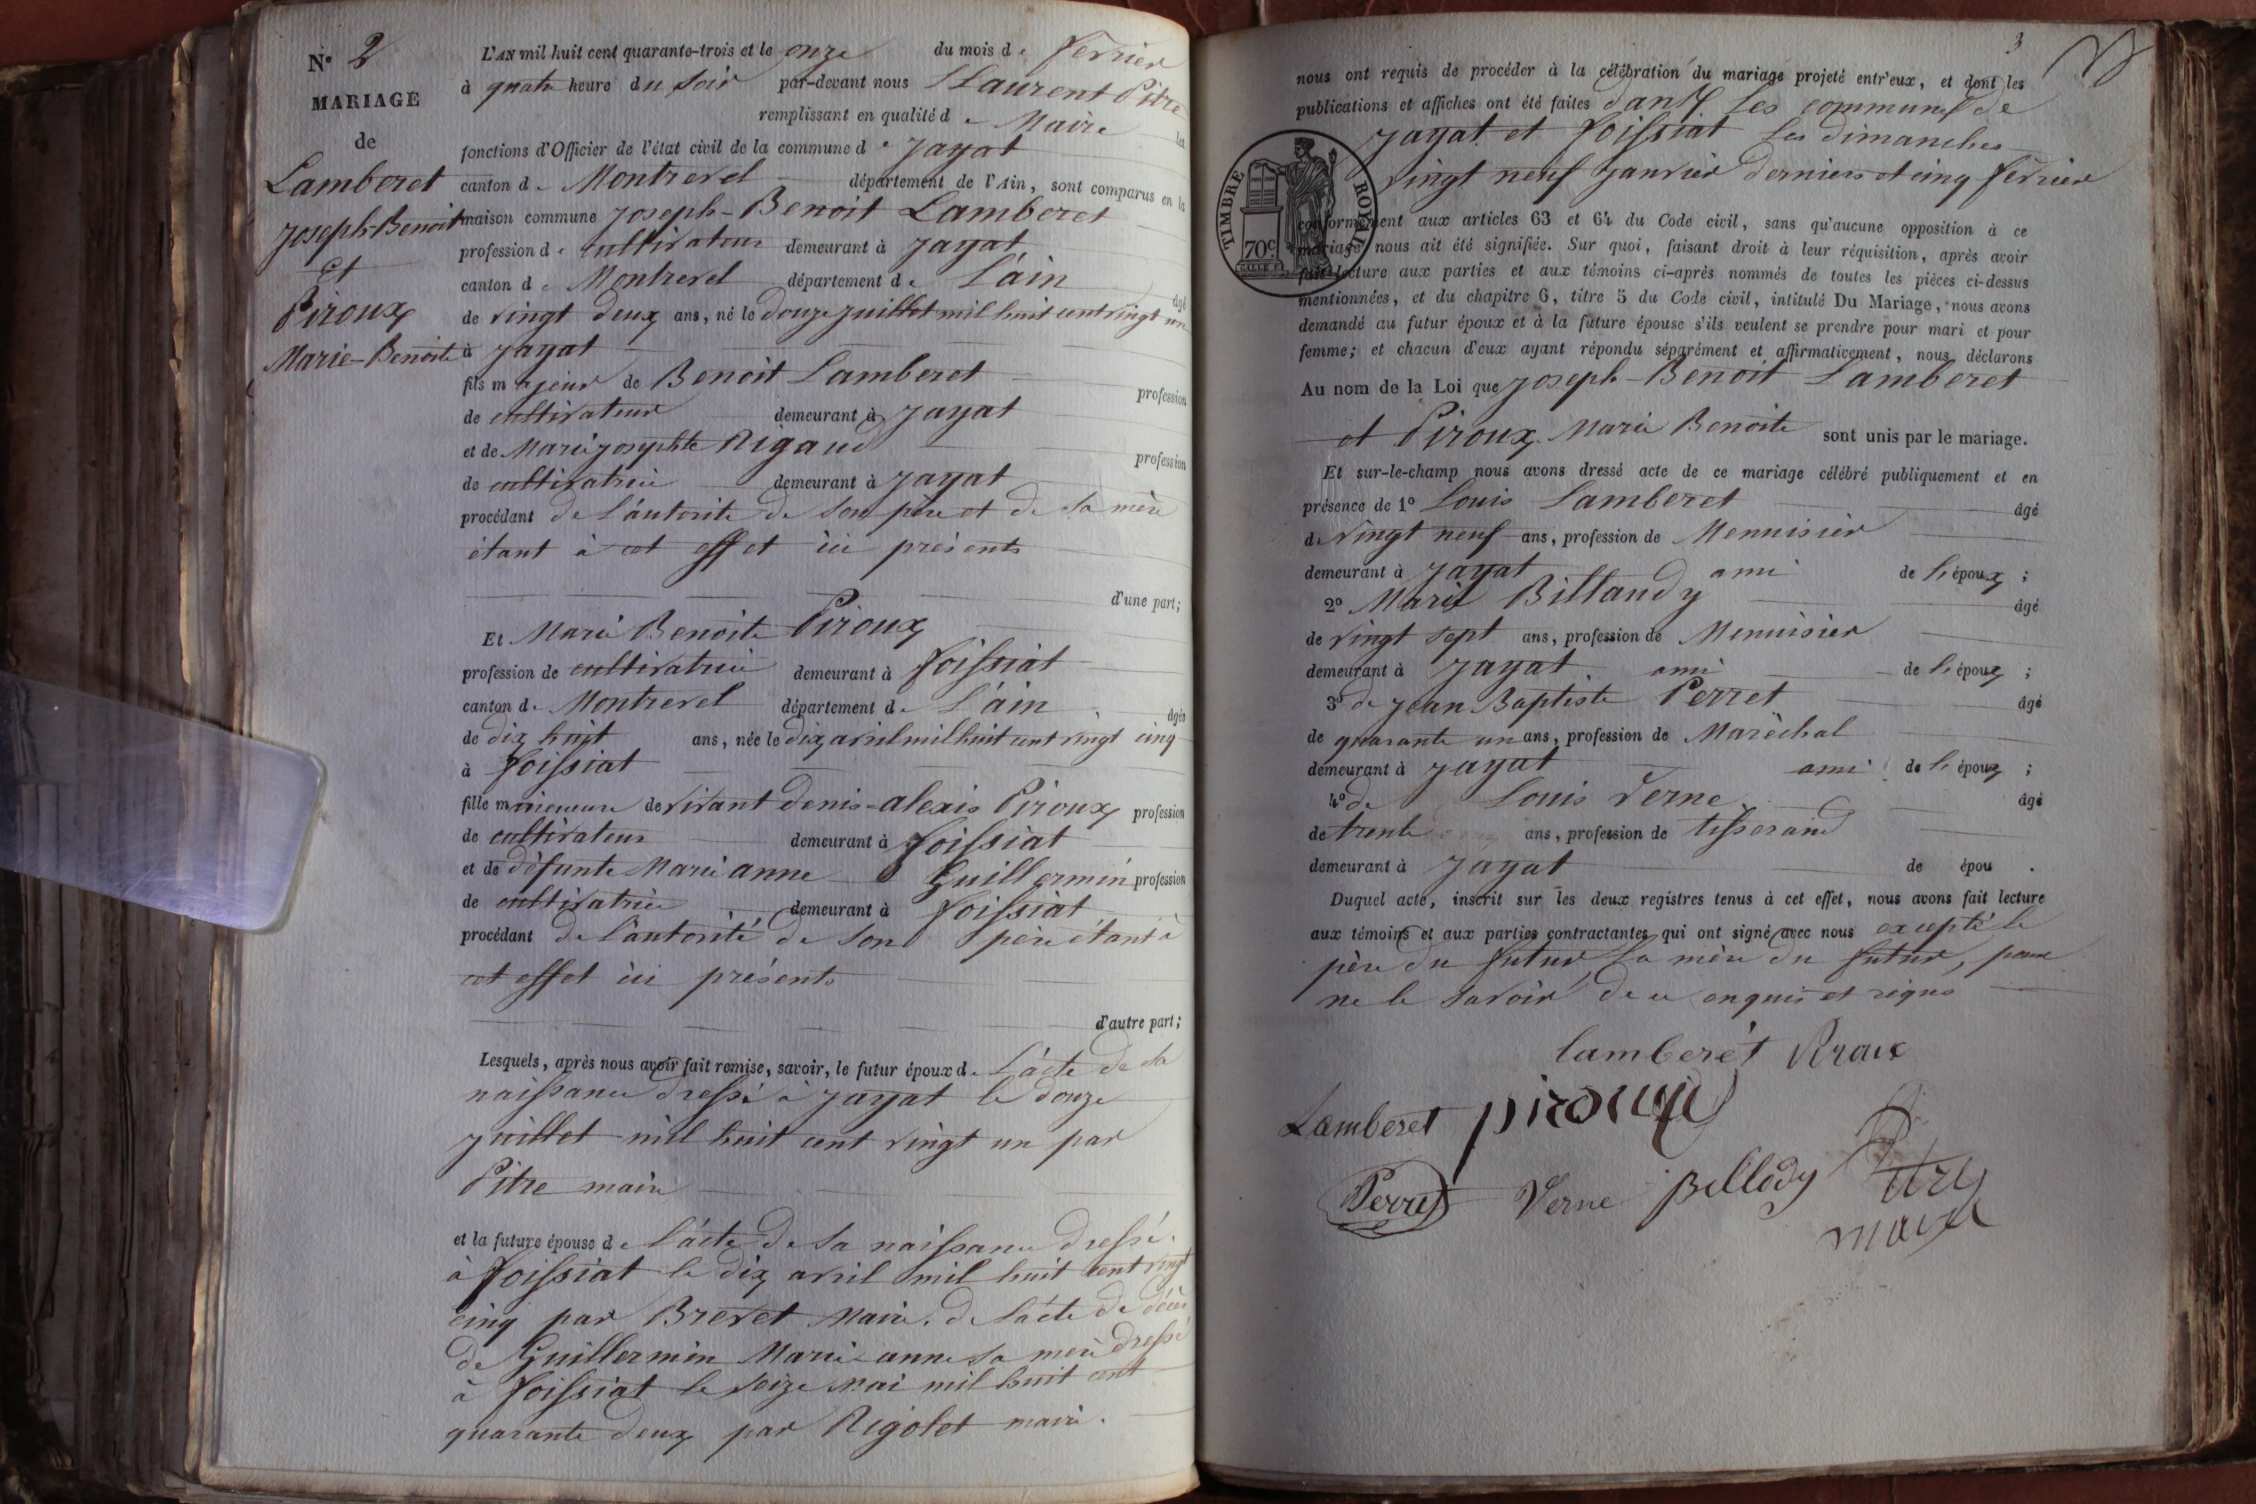 N° 2
MARIAGE
de
Lamberet
Joseph-Benoit
Et
Piroux
Marie-Benoite
L'AN mil huit cent quarante-trois et le onze du mois de février
à quatre heure du soir par-devant nous Laurent Pitre
remplissant en qualité de Maire les
fonctions d'Officier de l'état civil de la commune de Jayat
canton de Montrevel département de l'Ain, sont comparus en la
maison commune Joseph-Benoit Lamberet
profession de cultivateur demeurant à Jayat
canton de Montrevel département de L'ain âgé
de vingt deux ans, né le douze juillet mil huit cent vingt un
à Jayat
fils majeur de Benoit Lamberet profession
de cultivateur demeurant à Jayat
et de Marie josephte Rigaud profession
de cultivatrice demeurant à Jayat
procédant de l'autorité de son père et de sa mère
étant à cet effet ici présents
d'une part;
Et Marie Benoite Piroux
profession de cultivatrice demeurant à foissiat
canton de Montrevel département de L'ain âgée
de dix huit ans, née le dix avril mil huit cent vingt cinq
à foissiat
fille mineure de vivant denis-alexis Piroux profession
de cultivateur demeurant à foissiat
et de défunte Marie anne Guillermin profession
de cultivatrice demeurant à foissiat
procédant de l'autorité de son père étant à
cet effet ici présents
d'autre part;
Lesquels, après nous avoir fait remise, savoir, le futur époux de L'acte de sa
naissance dressé à Jayat le douze
juillet mil huit cent vingt un par
Pitre maire
et la future épouse de l'acte de sa naissance dressé
à foissiat le dix avril mil huit cent vingt
cinq par Brevet Maire. de l'acte de décès
de Guillermin Marie-anne sa mère dressé
à foissiat le seize mai mil huit cent
quarante deux par Rigolet maire.
3
nous ont requis de procéder à la célébration du mariage projeté entr'eux, et dont les
publications et affiches ont été faites dans les communes de
Jayat et foissiat les dimanches
vingt neuf janvier derniers et cinq février
TIMBRE ROYAL
70c.
conformément aux articles 63 et 64 du Code civil, sans qu'aucune opposition à ce
mariage nous ait été signifiée. Sur quoi, faisant droit à leur réquisition, après avoir
fait lecture aux parties et aux témoins ci-après nommés de toutes les pièces ci-dessus
mentionnées, et du chapitre 6, titre 5 du Code civil, intitulé Du Mariage, nous avons
demandé au futur époux et à la future épouse s'ils veulent se prendre pour mari et pour
femme; et chacun d'eux ayant répondu séparément et affirmativement, nous déclarons
Au nom de la Loi que Joseph-Benoit Lamberet
et Piroux Marie Benoite sont unis par le mariage.
Et sur-le-champ nous avons dressé acte de ce mariage célébré publiquement et en
présence de 1° Louis Lamberet âgé
de vingt neuf ans, profession de Menuisier
demeurant à Jayat ami de l'époux;
2° Marie Billaudy âgé
de vingt sept ans, profession de Menuisier
demeurant à Jayat ami de l'époux;
3° de jean Baptiste Perret âgé
de quarante un ans, profession de Maréchal
demeurant à Jayat ami de l'époux;
4° de Louis Verne âgé
de trente ans, profession de tisserand
demeurant à Jayat de épou .
Duquel acte, inscrit sur les deux registres tenus à cet effet, nous avons fait lecture
aux témoins et aux parties contractantes qui ont signé avec nous excepté le
père du futur, la mère du futur, pour
ne le savoir de ce enquis et requis
lamberét
Lamberet piroux
Perret Verne Billody Pitre
maire